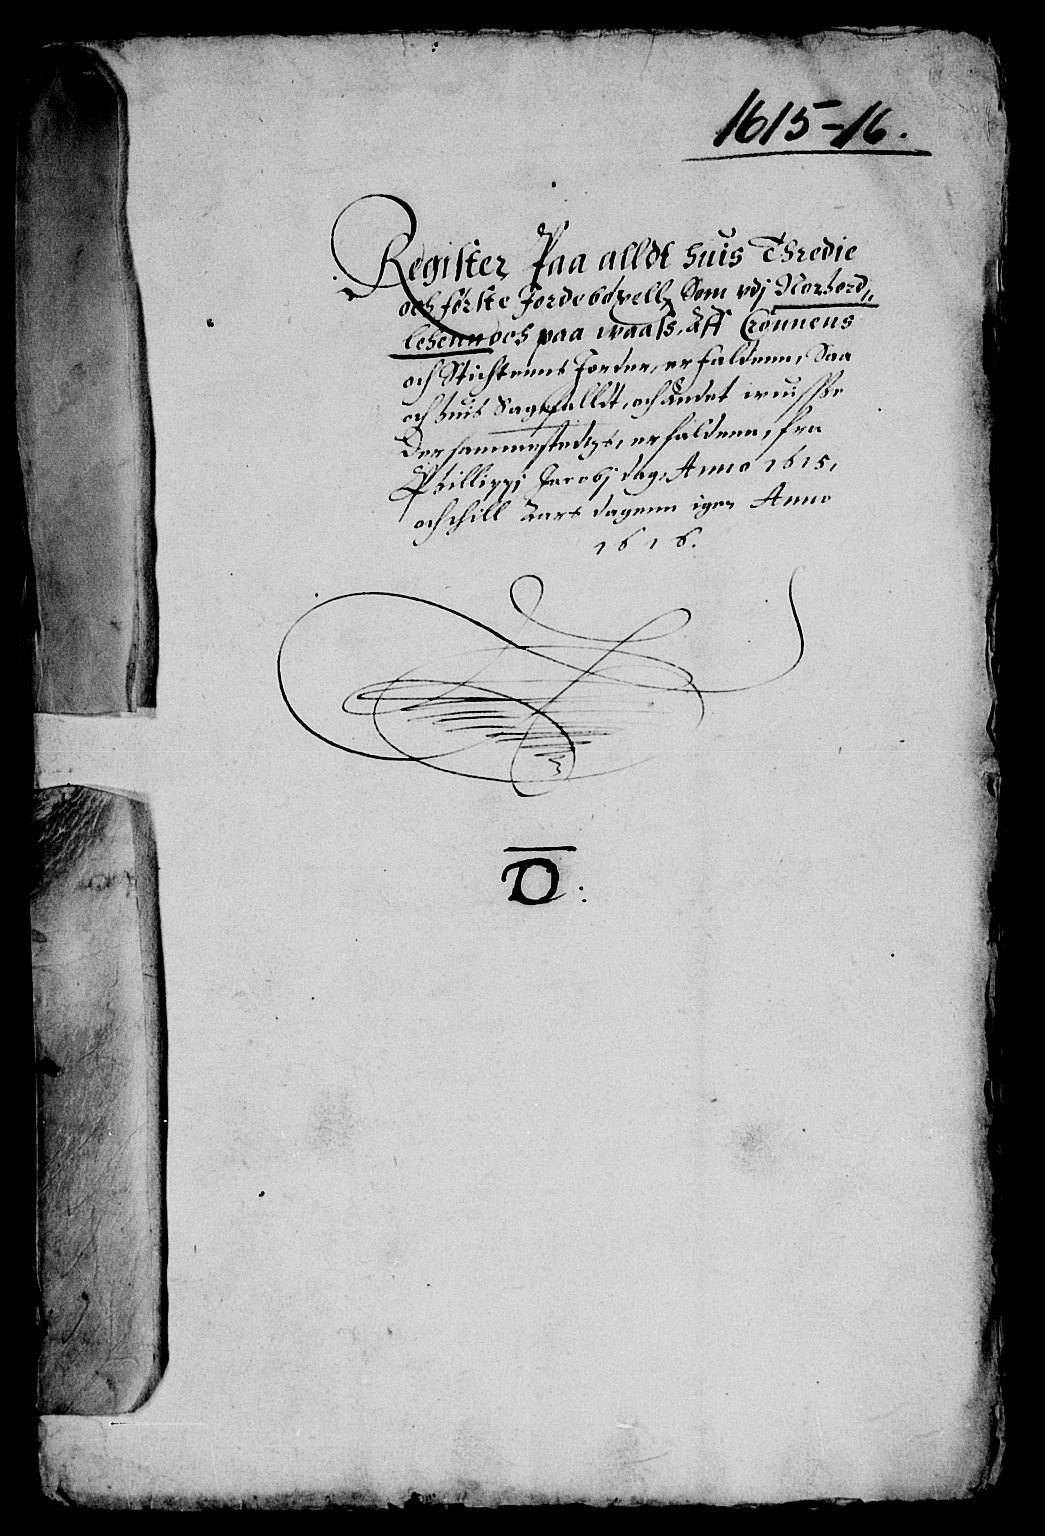 1615-16.
Register Paa alldt huis Thredie
och förste Jordebögell Som vdj Norhord„
lehenn och paa waass, Aff Cronnens
och Stichtenns Jorder, er faldenn, Saa
och huis Sagefalldt, och Andet wuisse
Der sammestedtz, er faldenn, fra
Phillippj Jacobj dag, Anno 1615,
och thill Aars dagenn igen Anno
1616.
D: